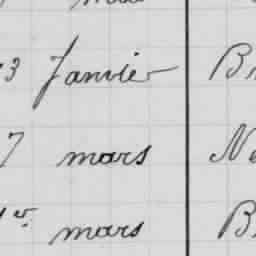 3 Janvier
7 mars
1er mars